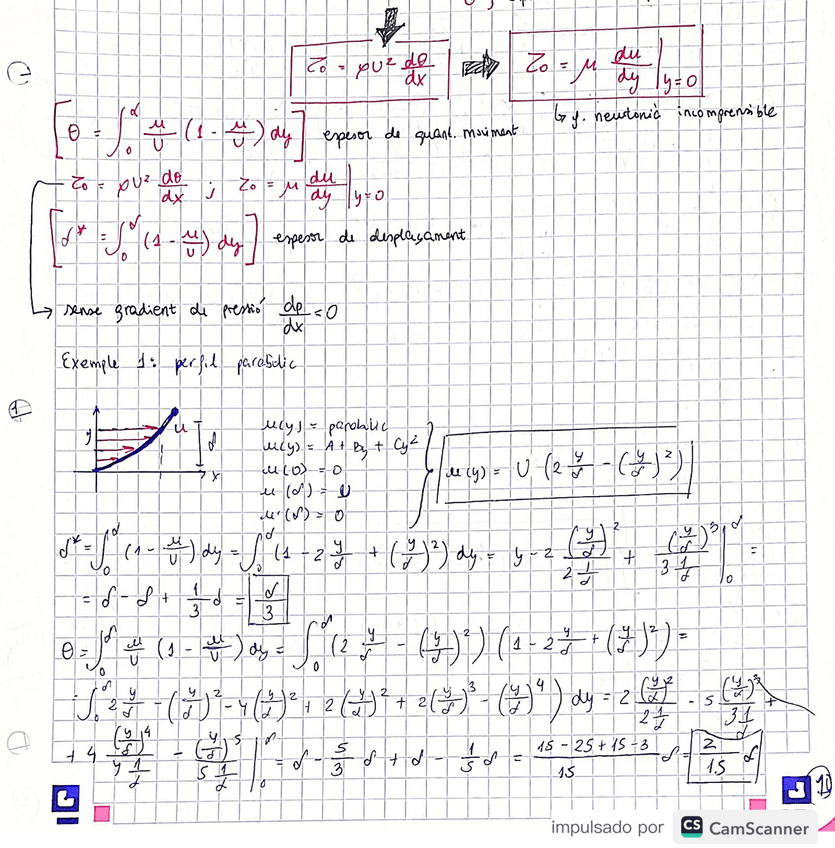 τ₀ = ρU² dθ/dx ⇒ τ₀ = μ du/dy |y=0
↳ f. newtonià incompressible
[θ = ∫₀^δ u/U (1 - u/U) dy] espesor de quant. moviment
τ₀ = ρU² dθ/dx ; τ₀ = μ du/dy |y=0
[δ* = ∫₀^δ (1 - u/U) dy] espesor de desplaçament
↳ sense gradient de pressió dp/dx = 0
Exemple 1: perfil parabòlic
1
y u δ x
u(y) = parabolic
u(y) = A + By + Cy²
u(0) = 0
u(δ) = U
u'(δ) = 0
u(y) = U (2 y/δ - (y/δ)²)
δ* = ∫₀^δ (1 - u/U) dy = ∫₀^δ (1 - 2 y/δ + (y/δ)²) dy = y - 2 (y/δ)²/(2 1/δ) + (y/δ)³/(3 1/δ) |₀^δ =
= δ - δ + 1/3 δ = δ/3
θ = ∫₀^δ u/U (1 - u/U) dy = ∫₀^δ (2 y/δ - (y/δ)²) (1 - 2 y/δ + (y/δ)²) =
= ∫₀^δ 2 y/δ - (y/δ)² - 4 (y/δ)² + 2 (y/δ)² + 2 (y/δ)³ - (y/δ)⁴) dy = 2 (y/δ)²/(2 1/δ) - 5 (y/δ)³/(3 1/δ) +
+ 4 (y/δ)⁴/(4 1/δ) - (y/δ)⁵/(5 1/δ) |₀^δ = δ - 5/3 δ + δ - 1/5 δ = (15 - 25 + 15 - 3)/15 δ = 2/15 δ
impulsado por CS CamScanner